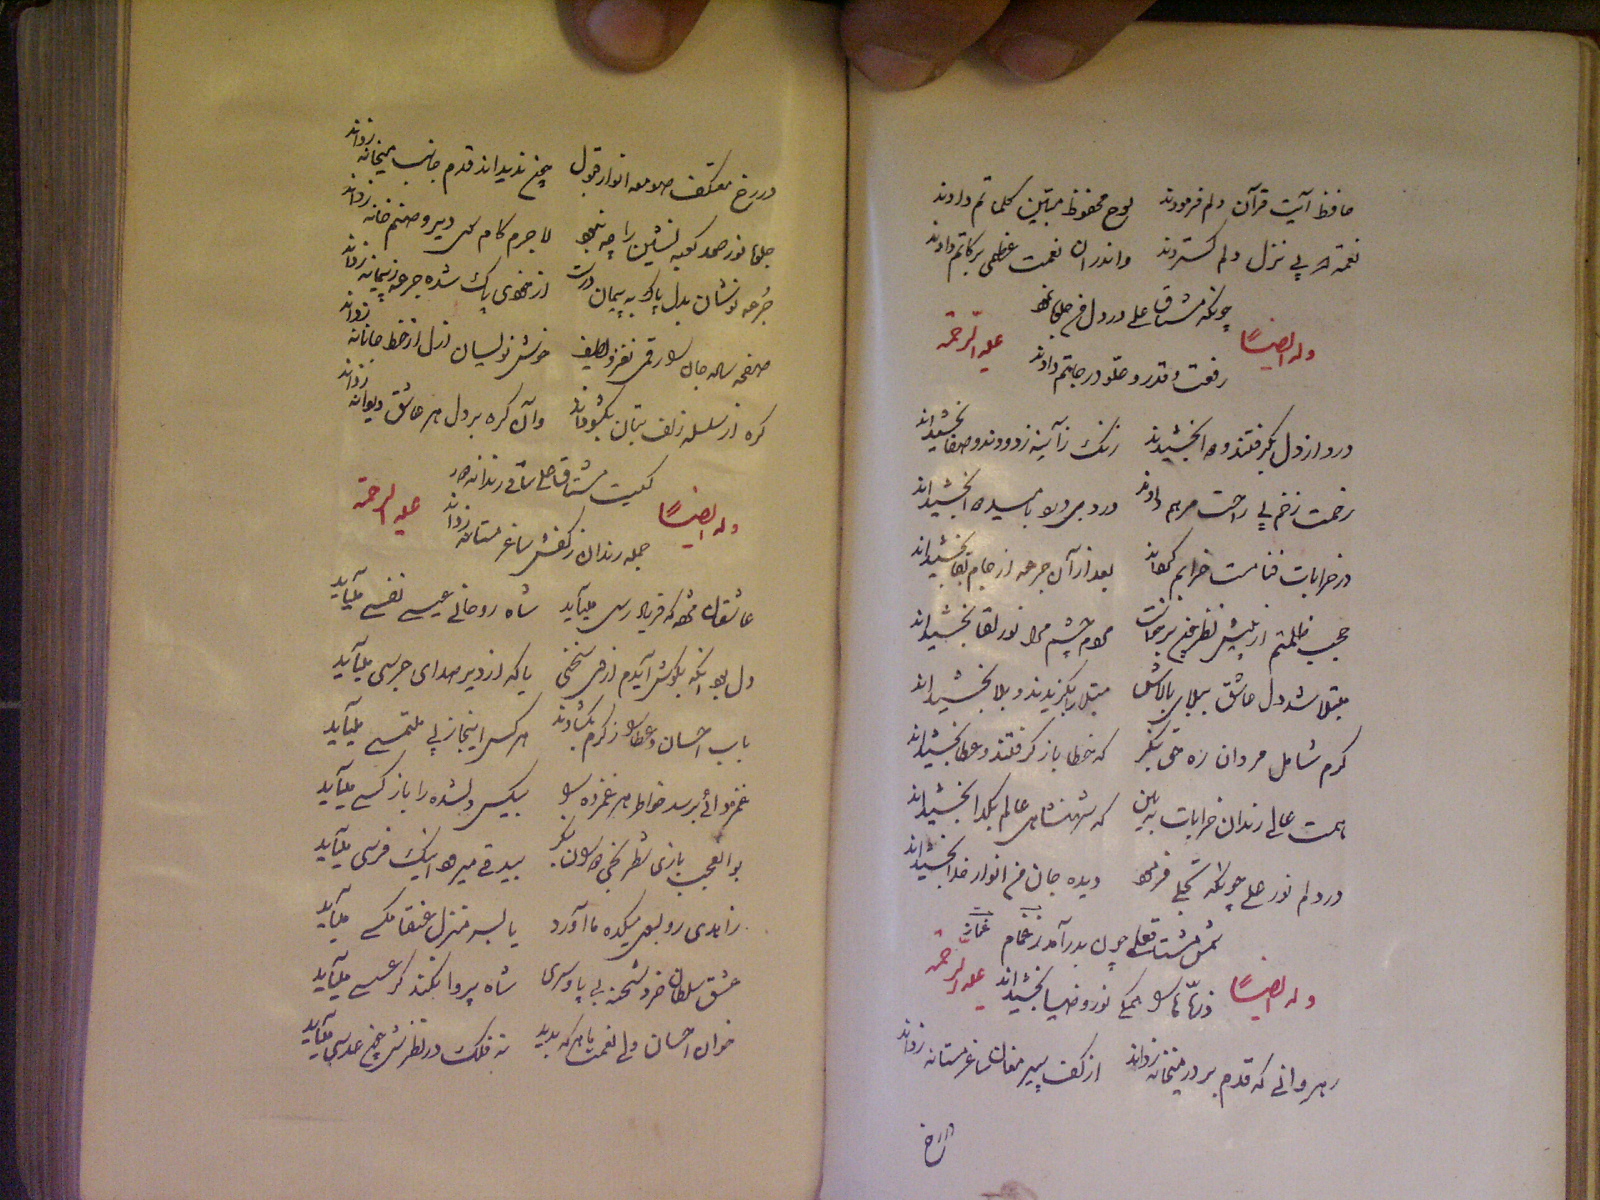 حافظ آیت قرآن دلم فرمودند لوح محفوظ مبین کلماتم دادند
نعمت هر پی نزل دلم گستردند واندران نعمت عظمی برکاتم دادند
چونکه مشتاق علی در دل من جلوه نمود
وله ایضاً علیه الرحمة
رفعت و قدر و علو درجاتم دادند
درد از دل بگرفتند و دوا بخشیدند زنک ز آینه زدودند و صفا بخشیدند
زحمت زخم پی راحت مرهم دادند درد بی درد
در خرابات فنا مست خرابم کردند بعد از آن جرعه از جام بقا بخشیدند
حجب ظلمتم از پیش نظر چشم مرا نور لقا بخشیدند
مبتلا شد دل عاشق ببلای بالاش مبتلا را بگزیدند و بلا بخشیدند
کرم شامل مردان ره حق بنگر که خطا باز گرفتند و عطا بخشیدند
همت عالی رندان خرابات ببین که شهنشاهی عالم بگدا بخشیدند
در دلم نور علی چونکه تجلی فرمود دیده جان من انوار خدا بخشیدند
شمس مشتاقعلی چون بدر آمد ز غمام
وله ایضاً علیه الرحمة
نور و ضیا بخشیدند
رهروانی که قدم بر در میخانه زدند از کف پیر مغان ساغر مستانه زدند
در رخ
در رخ معتکف صومعه انوار قبول چون ندیدند قدم جانب میخانه زدند
جلوه نور صمد کعبه نشین را چه نبود لاجرم کام سوی دیر و صنم خانه زدند
جرعه نوشان بدل پاک به پیمان درست از خودی پاک شده جرعه ز پیمانه زدند
صفحه ساده جان را رقمی نغز و لطیف خوش نویسان ازل از خط جانانه زدند
گره از سلسله زلف بتان بگشودند وآن گره بر دل هر عاشق دیوانه زدند
کیست مشتاق علی ساقی رندانه
وله ایضاً علیه الرحمة
جمله رندان ز کفش ساغر مستانه زدند
عاشقان مژده که فریادرسی میآید شاه روحانی عیسی نفسی میآید
یا که از دیر صدای جرسی میآید
باب احسان و عطا را ز کرم بگشادند هر کس اینجا ز پی ملتمسی میآید
برسد خاطر هر غمزده را بیکس دلشده را باز کسی میآید
بوالعجب بازی شطرنجی بنگر بیدقی میرود اینک فرسی میآید
زاهدی رو بسوی میکده ما آورد یا بسر منزل عنقا مگسی میآید
عشق سلطان خرد شحنه بی پا و سری شاه پروا نکند گر عسسی میآید
خوان احسان ولی نعمت ما هر که بدید نه فلک در نظرش چون عدسی میآید